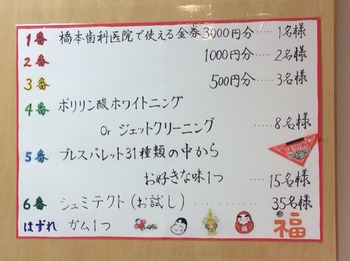 1番 橋本歯科医院で使える金券3000円分……1名様
2番 1000円分……2名様
3番 500円分……3名様
4番 ポリリン酸ホワイトニング
Or ジェットクリーニング
……8名様
5番 ブレスパレット31種類の中から
お好きな味1つ……15名様
6番 シュミテクト(お試し)……35名様
はずれ ガム1つ
福